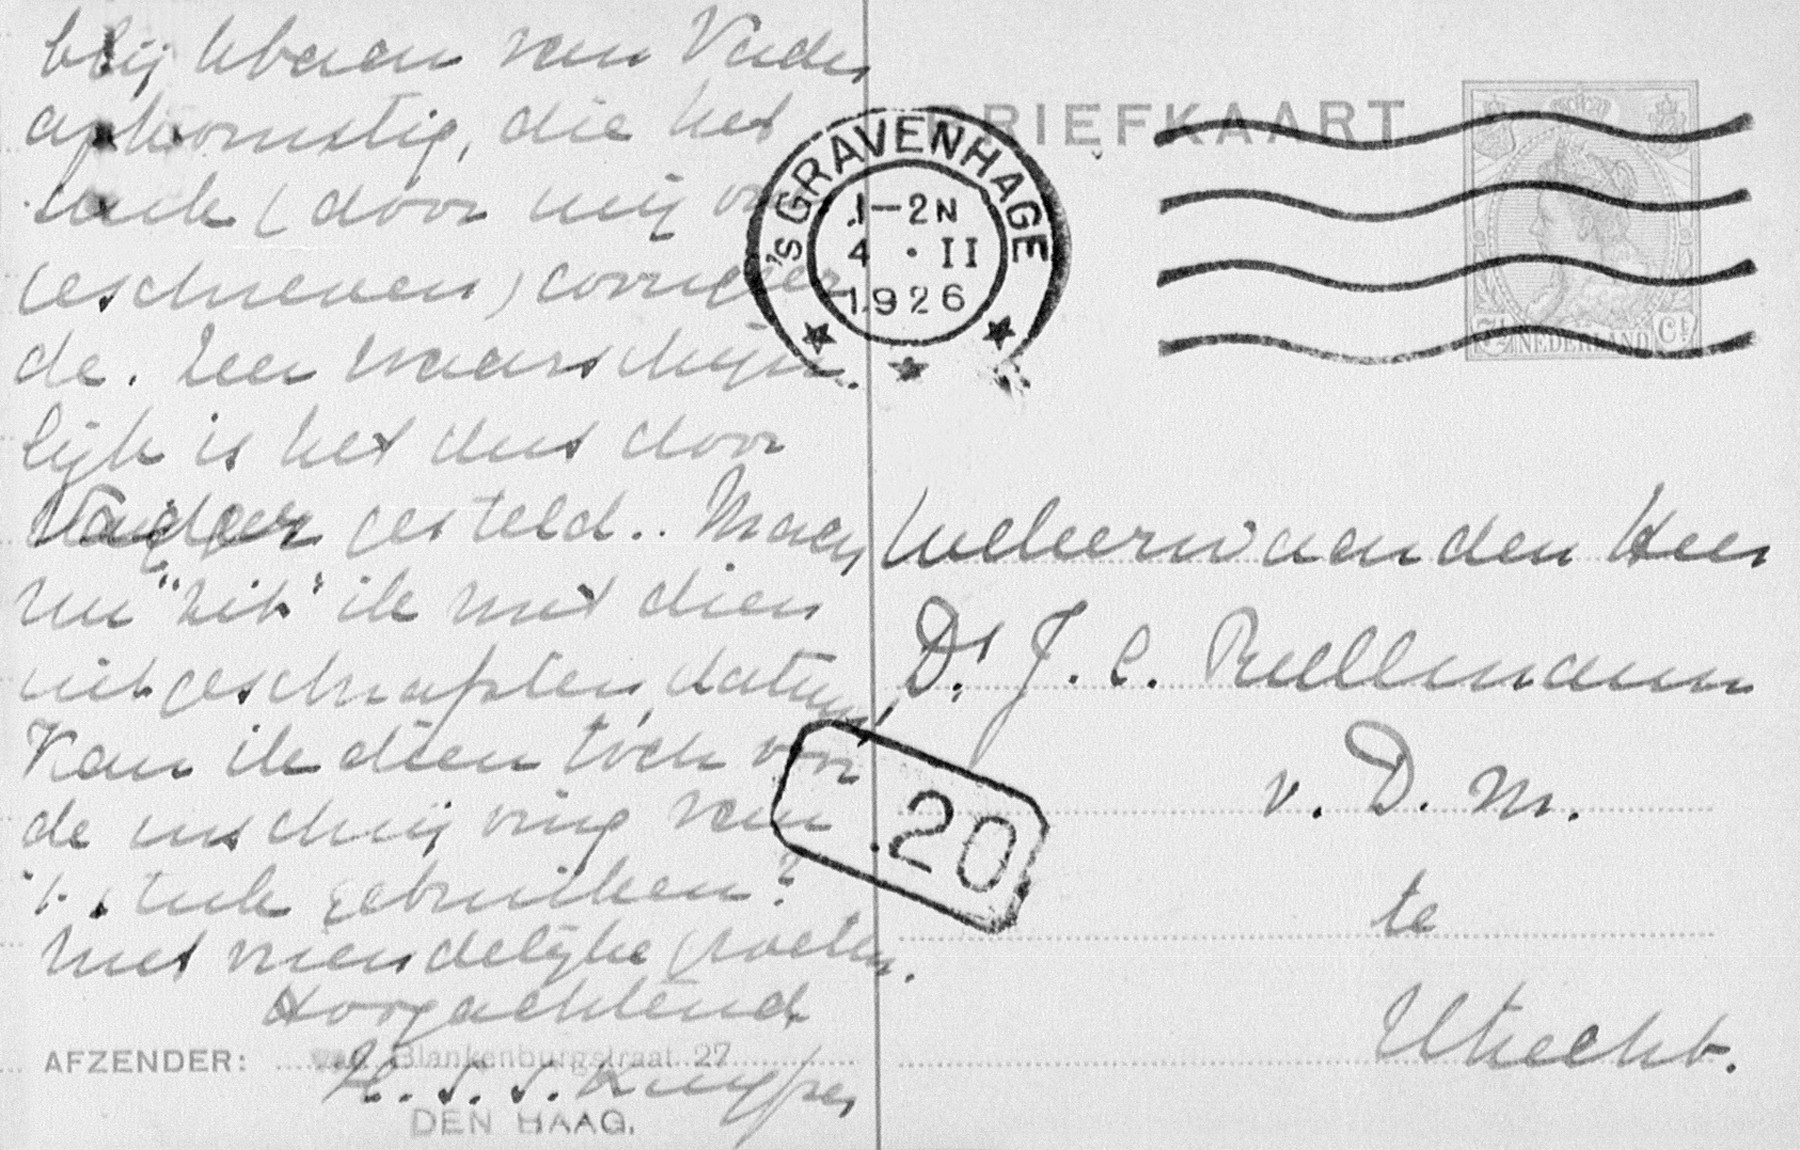 blijkbaar van Vader
afkomstig, die het
stuk (door mij over
geschreven) corrigeer
de. Zeer waarschijn
lijk is het dus door
Vader gesteld.. Maar
nu "zit" ik met dien
uitgeschrapten datum!
Kan ik dien toch voor
de inschrijving van
't stuk gebruiken?
Met vriendelijke groeten.
Hoogachtend
AFZENDER: van Blankenburgstraat 27
H. S. S. Kuyper
DEN HAAG.
BRIEFKAART
'S GRAVENHAGE
1-2N
4 · II
1926
7½ NEDERLAND Ct
20
Weleerw aan den Heer
Ds J. C. Rullmann
v. D. M.
te
Utrecht.